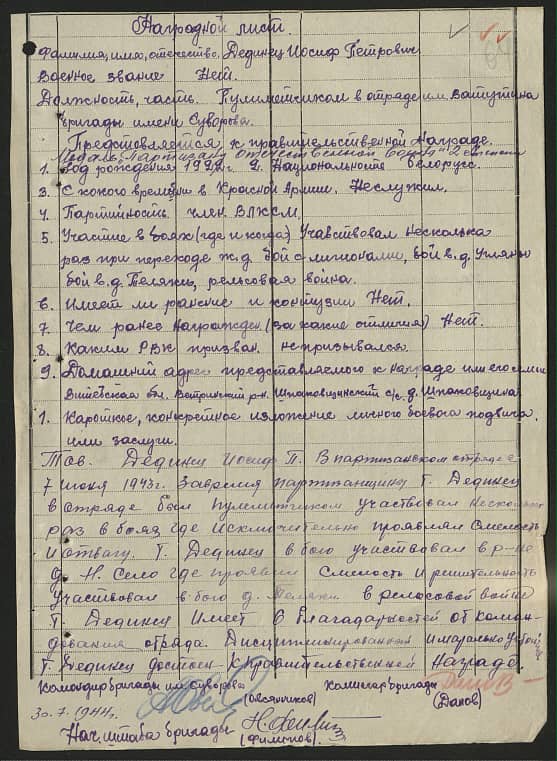 Наградной лист.
Фамилия, имя, отчество. Дединец Иосиф Петрович
Военное звание Нет.
Должность, часть. Пулиметчиком в отряде им. Ватутина
бригады имени Суворова.
Предстовляется к правительственной Награде.
Медаль "Партизану отечественной войны" 2 степени
1. Год рождения 1922г. 2. Национальность белорусс.
3. С какого времени в Красной Армии. Неслужил.
4. Партийность член ВЛКСМ.
5. Участие в боях (где и когда) Учавствовал несколька
раз при переходе ж.д. бой с лигионами, бой в.д. Угляны
бой в.д. Теляки, рельсовая война.
6. Имеет ли ранение и контузии Нет.
7. Чем ранее Награжден. (за какие отличия) Нет.
8. Каким РВК призван. непризывался.
9. Домашний адрес представляемого к награде или его семьи
Витебская обл. Ветринский р-н. Шпаковщинский с/с. д. Шпаковщина
1. Кароткое, конкретное изложение личного боевого подвига
или заслуги.
Тов. Дединец Иосиф П. В партизанском отряде с
7 июня 1943г. Завремя партизанщины Т. Дединец
в отряде был пулиметчиком участвовал несколько
раз в боях где исключительно проявлял Смелость
и отвагу. Т. Дединец в бою участвовал в р-не
д. Н. Село где проявил Смелость и решительность
участвовал в бою д. Теляки в релосовой войне
Т. Дединец Имеет 6 благадарностей от коман-
дования отряда. Дисциплинированный и марально устой
Т. Дединец достоен к правительственной Награде
Командир бригады им. Суворова (Овсяников) Комисар бригады (Данов)
30.7.1944г.
Нач. штаба бригады (Филипов).